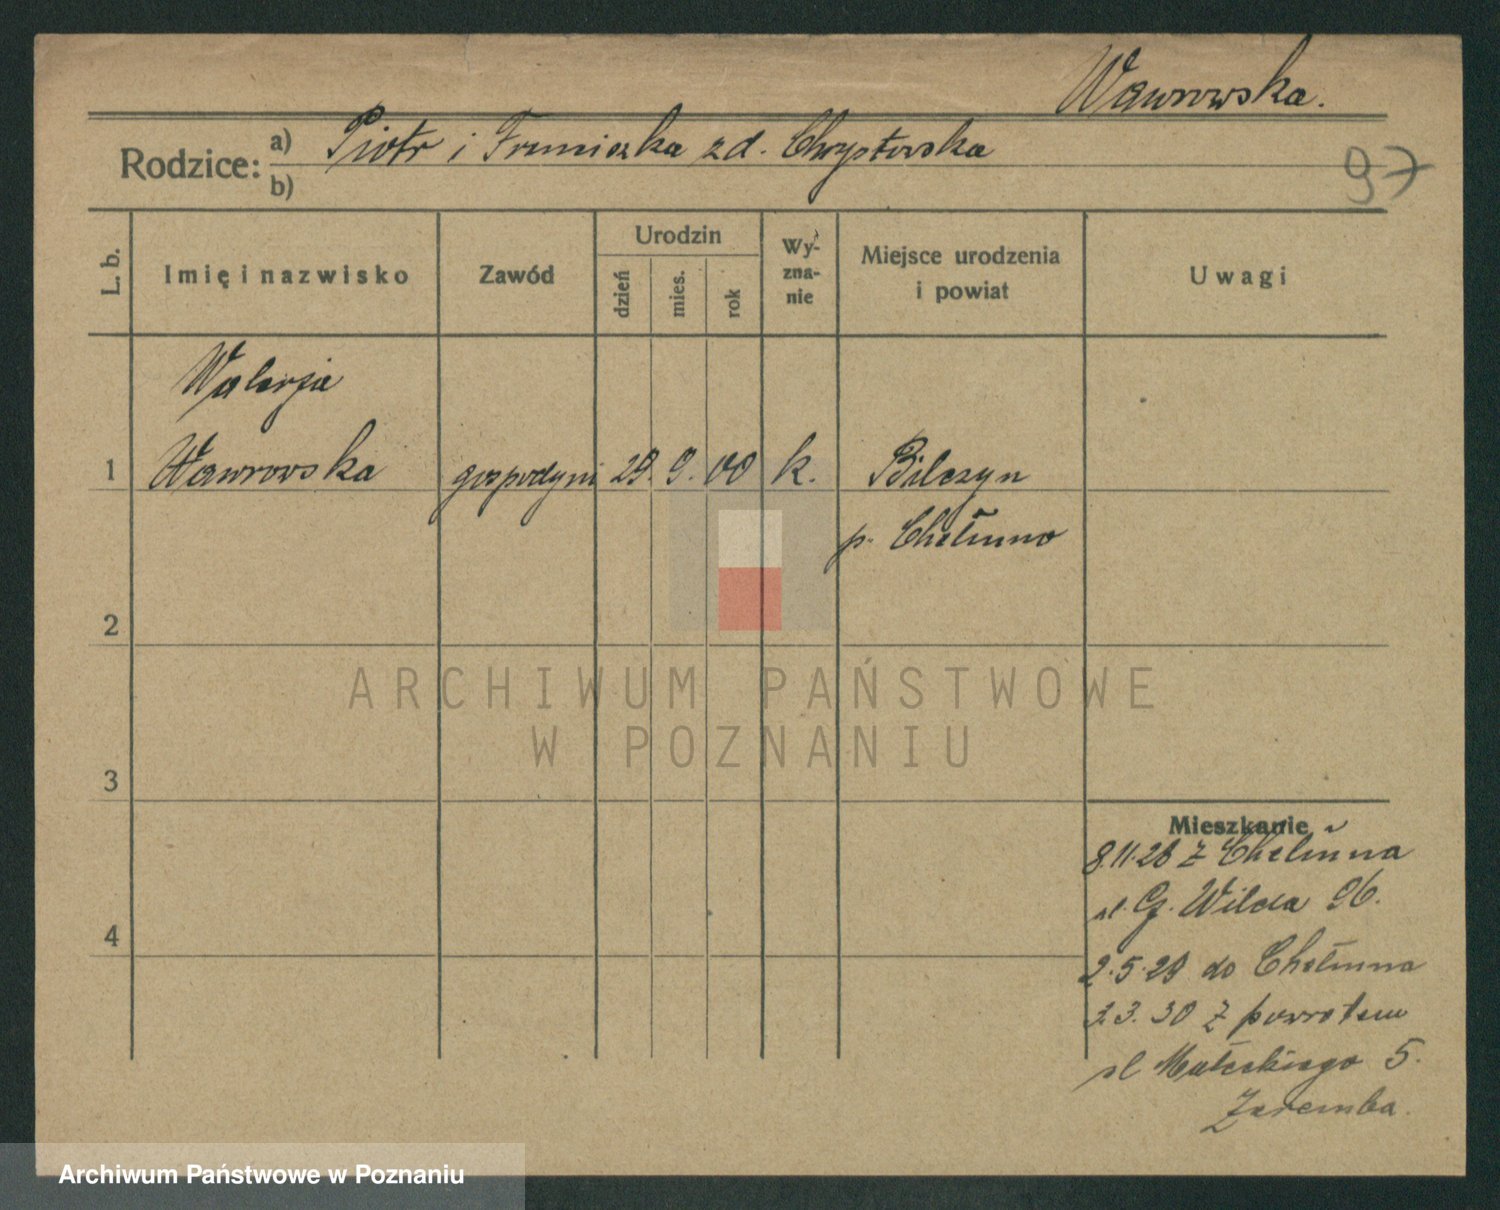 Wawrowska.
Rodzice: a) Piotr i Franciszka z d. Chrystowska
b)
97
L. b.
Imię i nazwisko
Zawód
Urodzin
dzień
mies.
rok
Wy-
zna-
nie
Miejsce urodzenia
i powiat
Uwagi
Walerja
1 Wawrowska gospodyni 29. 9. 00 k. Bilczyn
p. Chełmno
2
ARCHIWUM PAŃSTWOWE
W POZNANIU
3
Mieszkanie
8.11.28 z Chełmna
ul. G. Wilda 96.
4
2.5.29 do Chełmna
3.3.30 z powrotem
ul Małeckiego 5.
Zaremba.
Archiwum Państwowe w Poznaniu